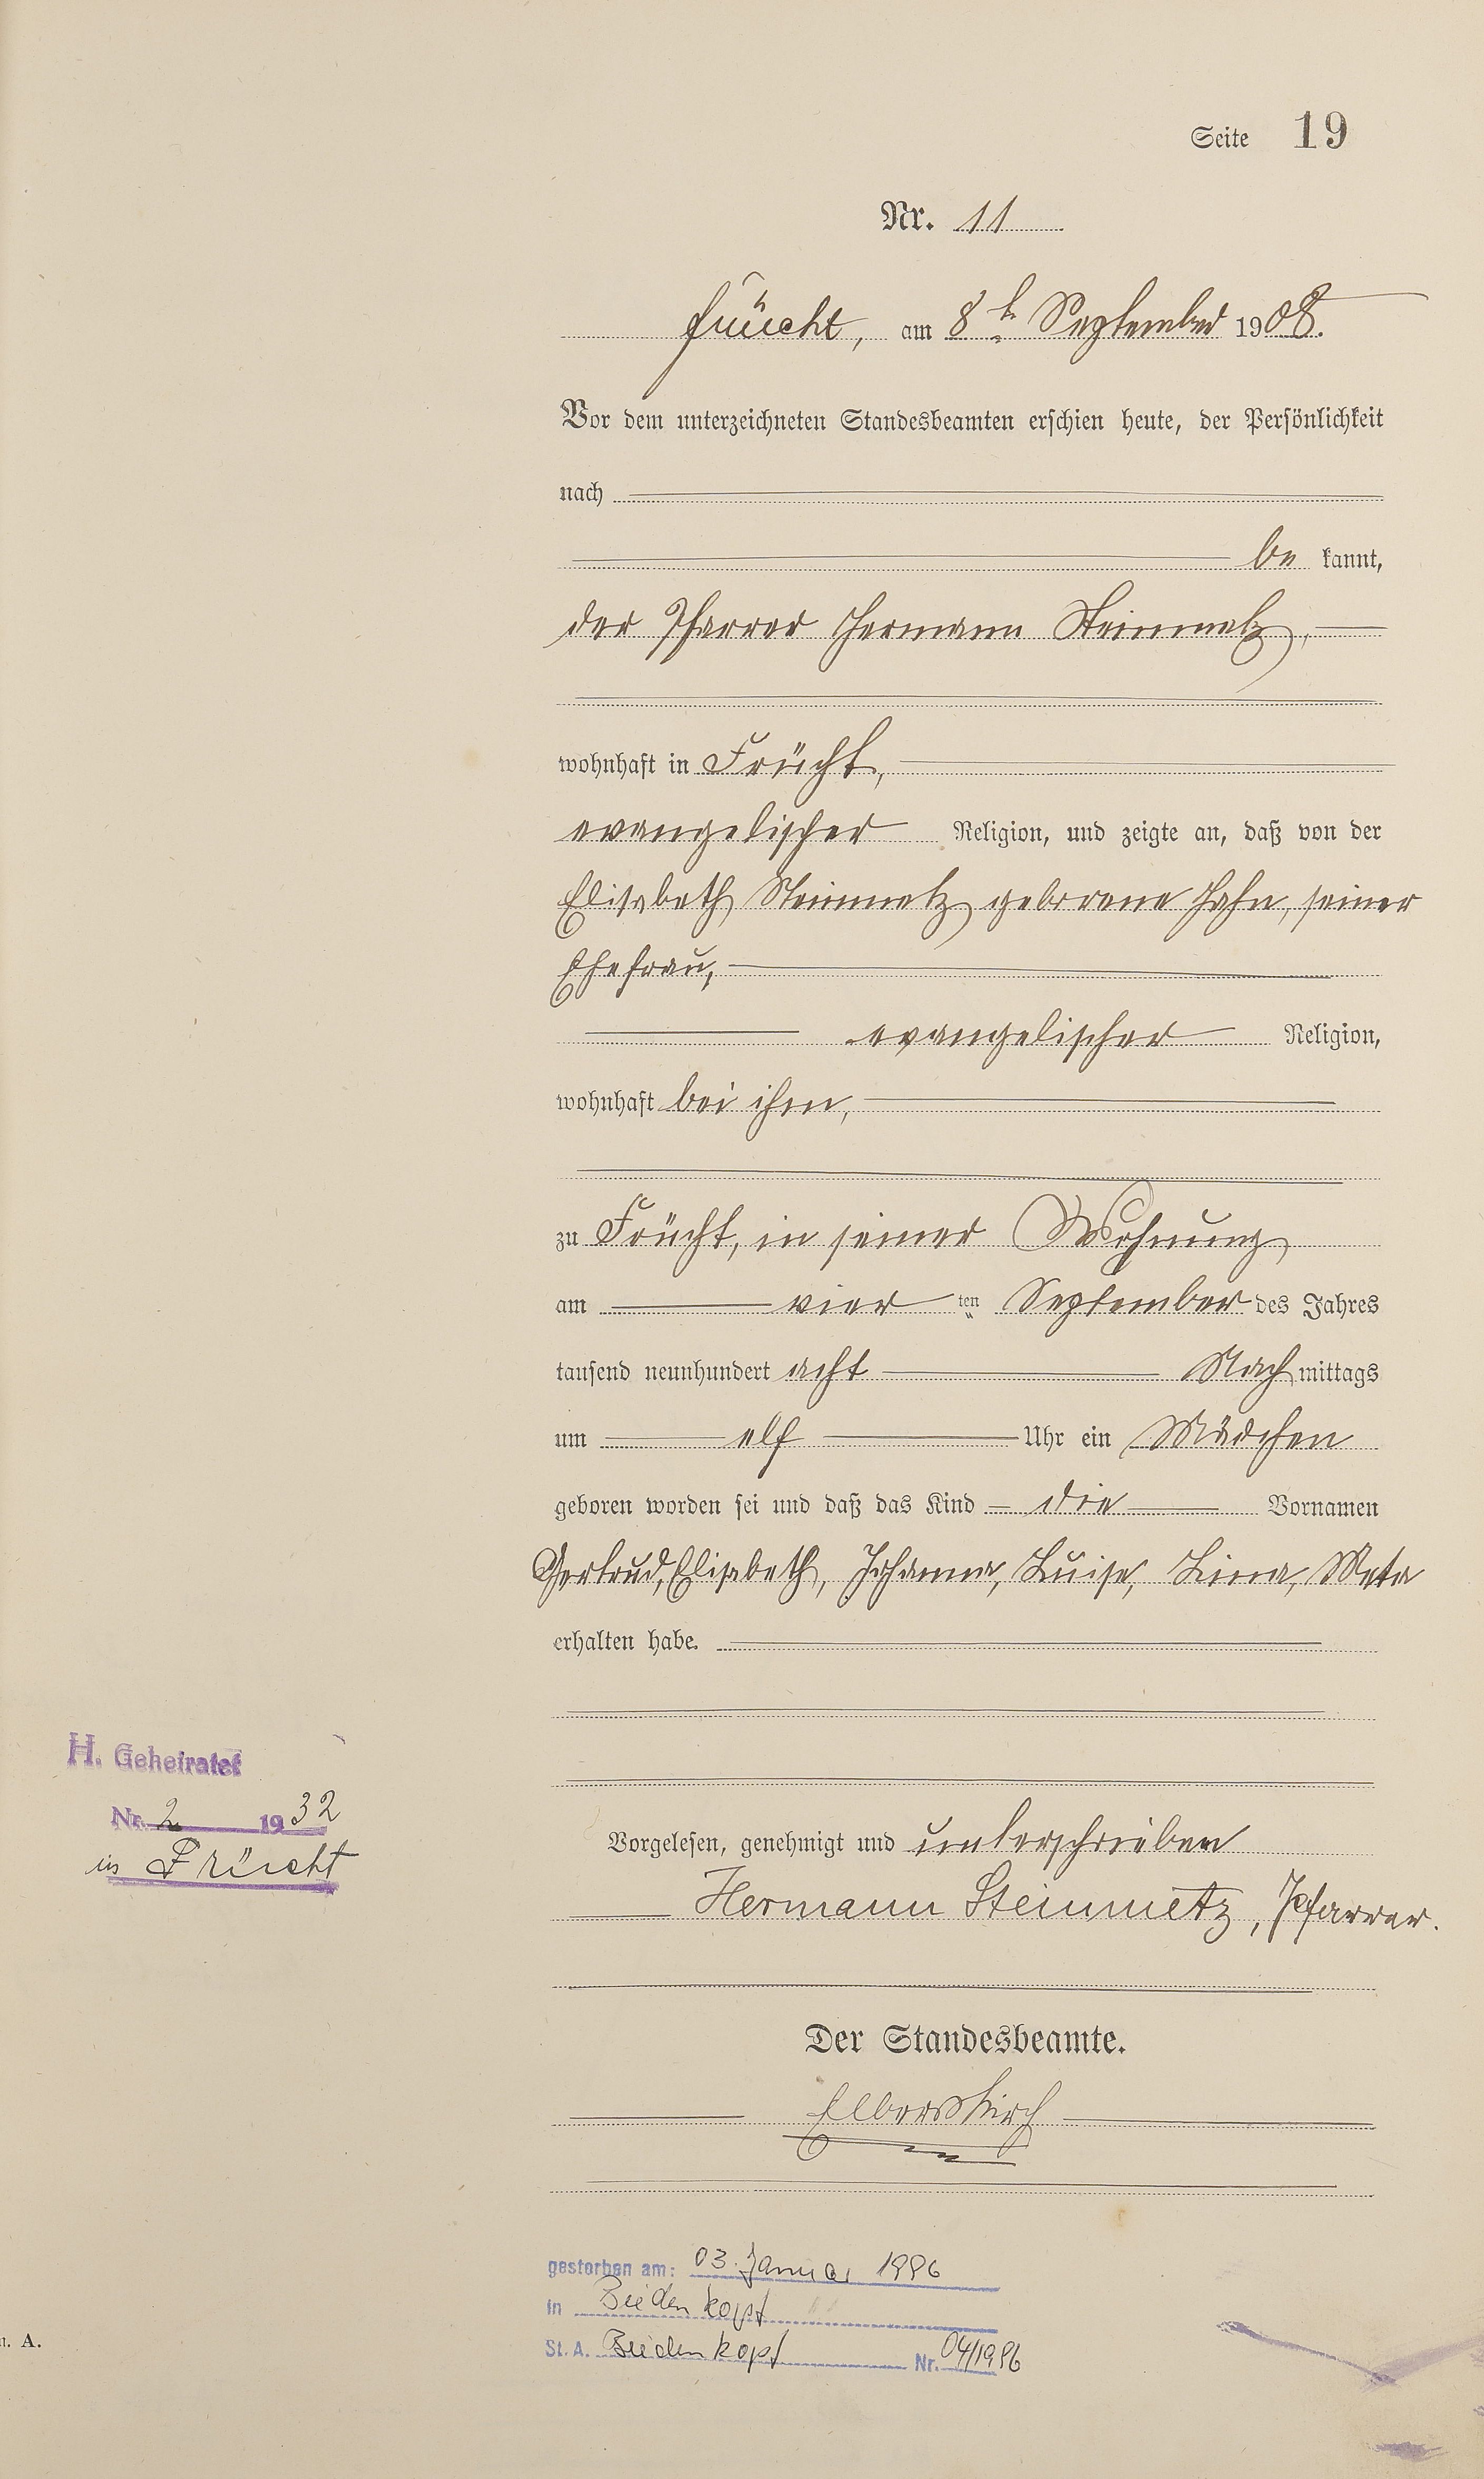 Seite 19
Nr. 11
Frücht, am 8t. September 1908.
Vor dem unterzeichneten Standesbeamten erschien heute, der Persönlichkeit
nach
be kannt,
der Pfarrer Hermann Steinmetz,
wohnhaft in Frücht,
evangelischer Religion, und zeigte an, daß von der
Elisabeth Steinmetz geborene Hahn, seiner
Ehefrau,
evangelischer Religion,
wohnhaft bei ihm,
zu Frücht, in seiner Wohnung
am vier ten September des Jahres
tausend neunhundert acht Nach mittags
um elf Uhr ein Mädchen
geboren worden sei und daß das Kind die Vornamen
Gertrud, Elisabeth, Johanna, Luise, Lina, Meta
erhalten habe.
H. Geheiratet
Nr. 2 1932
in Frücht
Vorgelesen, genehmigt und unterschrieben
Hermann Steinmetz, Pfarrer.
Der Standesbeamte.
Elberskirch
gestorben am: 03. Januar 1996
in Biedenkopf
St. A. Biedenkopf Nr. 04/1996
A.